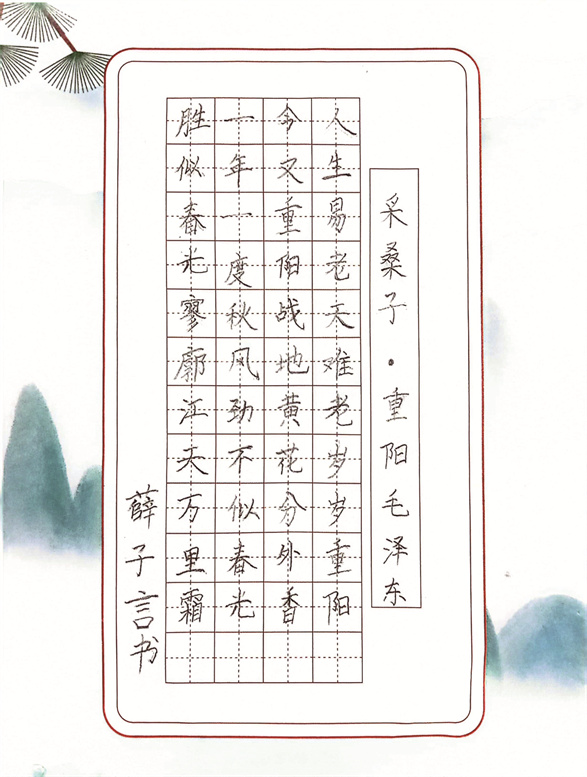 采桑子·重阳毛泽东
人生易老天难老岁岁重阳
今又重阳战地黄花分外香
一年一度秋风劲不似春光
胜似春光寥廓江天万里霜
薛子言书